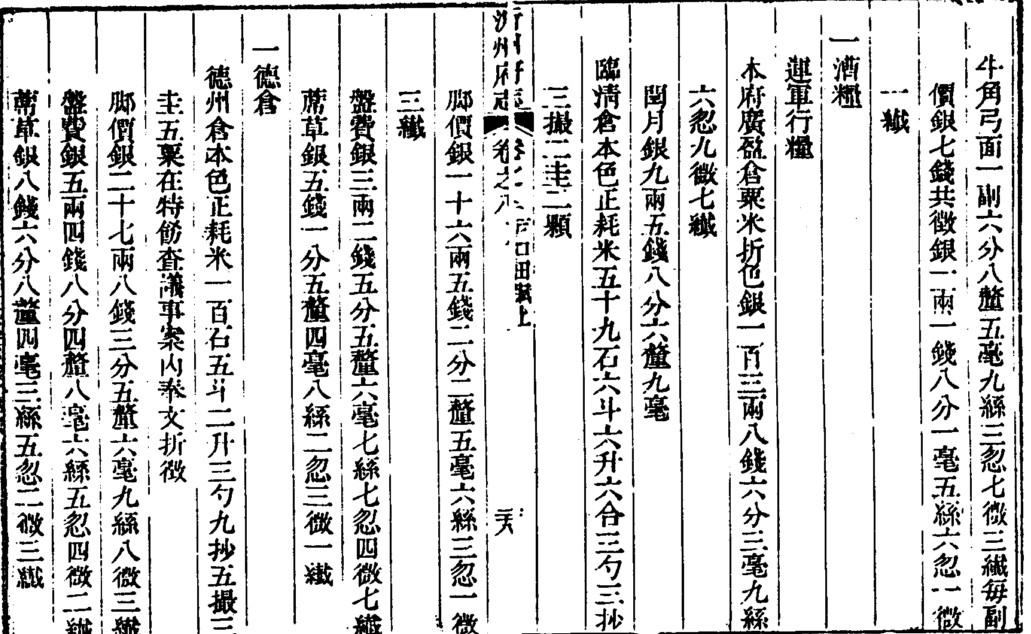 牛角弓面一副六分八釐五毫九絲三忽七微三纖每副
價銀七錢共徵銀一兩一錢八分一毫五絲六忽一微
一纖
一漕糧
運軍行糧
本府廣盈倉粟米折色銀一百三兩八錢六分三毫九絲
六忽九微七纖
閏月銀九兩五錢八分六釐九毫
臨清倉本色正耗米五十九石六斗六升六合三勺三抄
三撮二圭二顆
沂州府志 卷之八 田賦上
脚價銀一十六兩五錢二分二釐五毫六絲三忽一微
三纖
盤費銀三兩二錢五分五釐六毫七絲七忽四微七纖
蓆草銀五錢一分五釐四毫八絲二忽三微一纖
一德倉
德州倉本色正耗米一百石五斗二升三勺九抄五撮三
圭五粟在特飭查議事案內奉文折徵
脚價銀二十七兩八錢三分五釐六毫九絲八微三纖
盤費銀五兩四錢八分四釐八毫六絲五忽四微二纖
蓆草銀八錢六分八釐四毫三絲五忽二微三纖